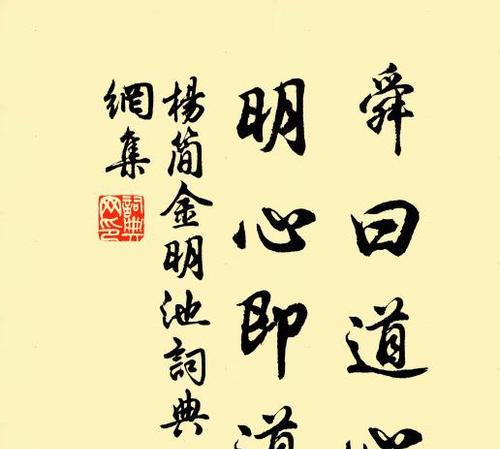 舜曰道心
明心即道
楊簡金明池詞典
網集
詞典
网印